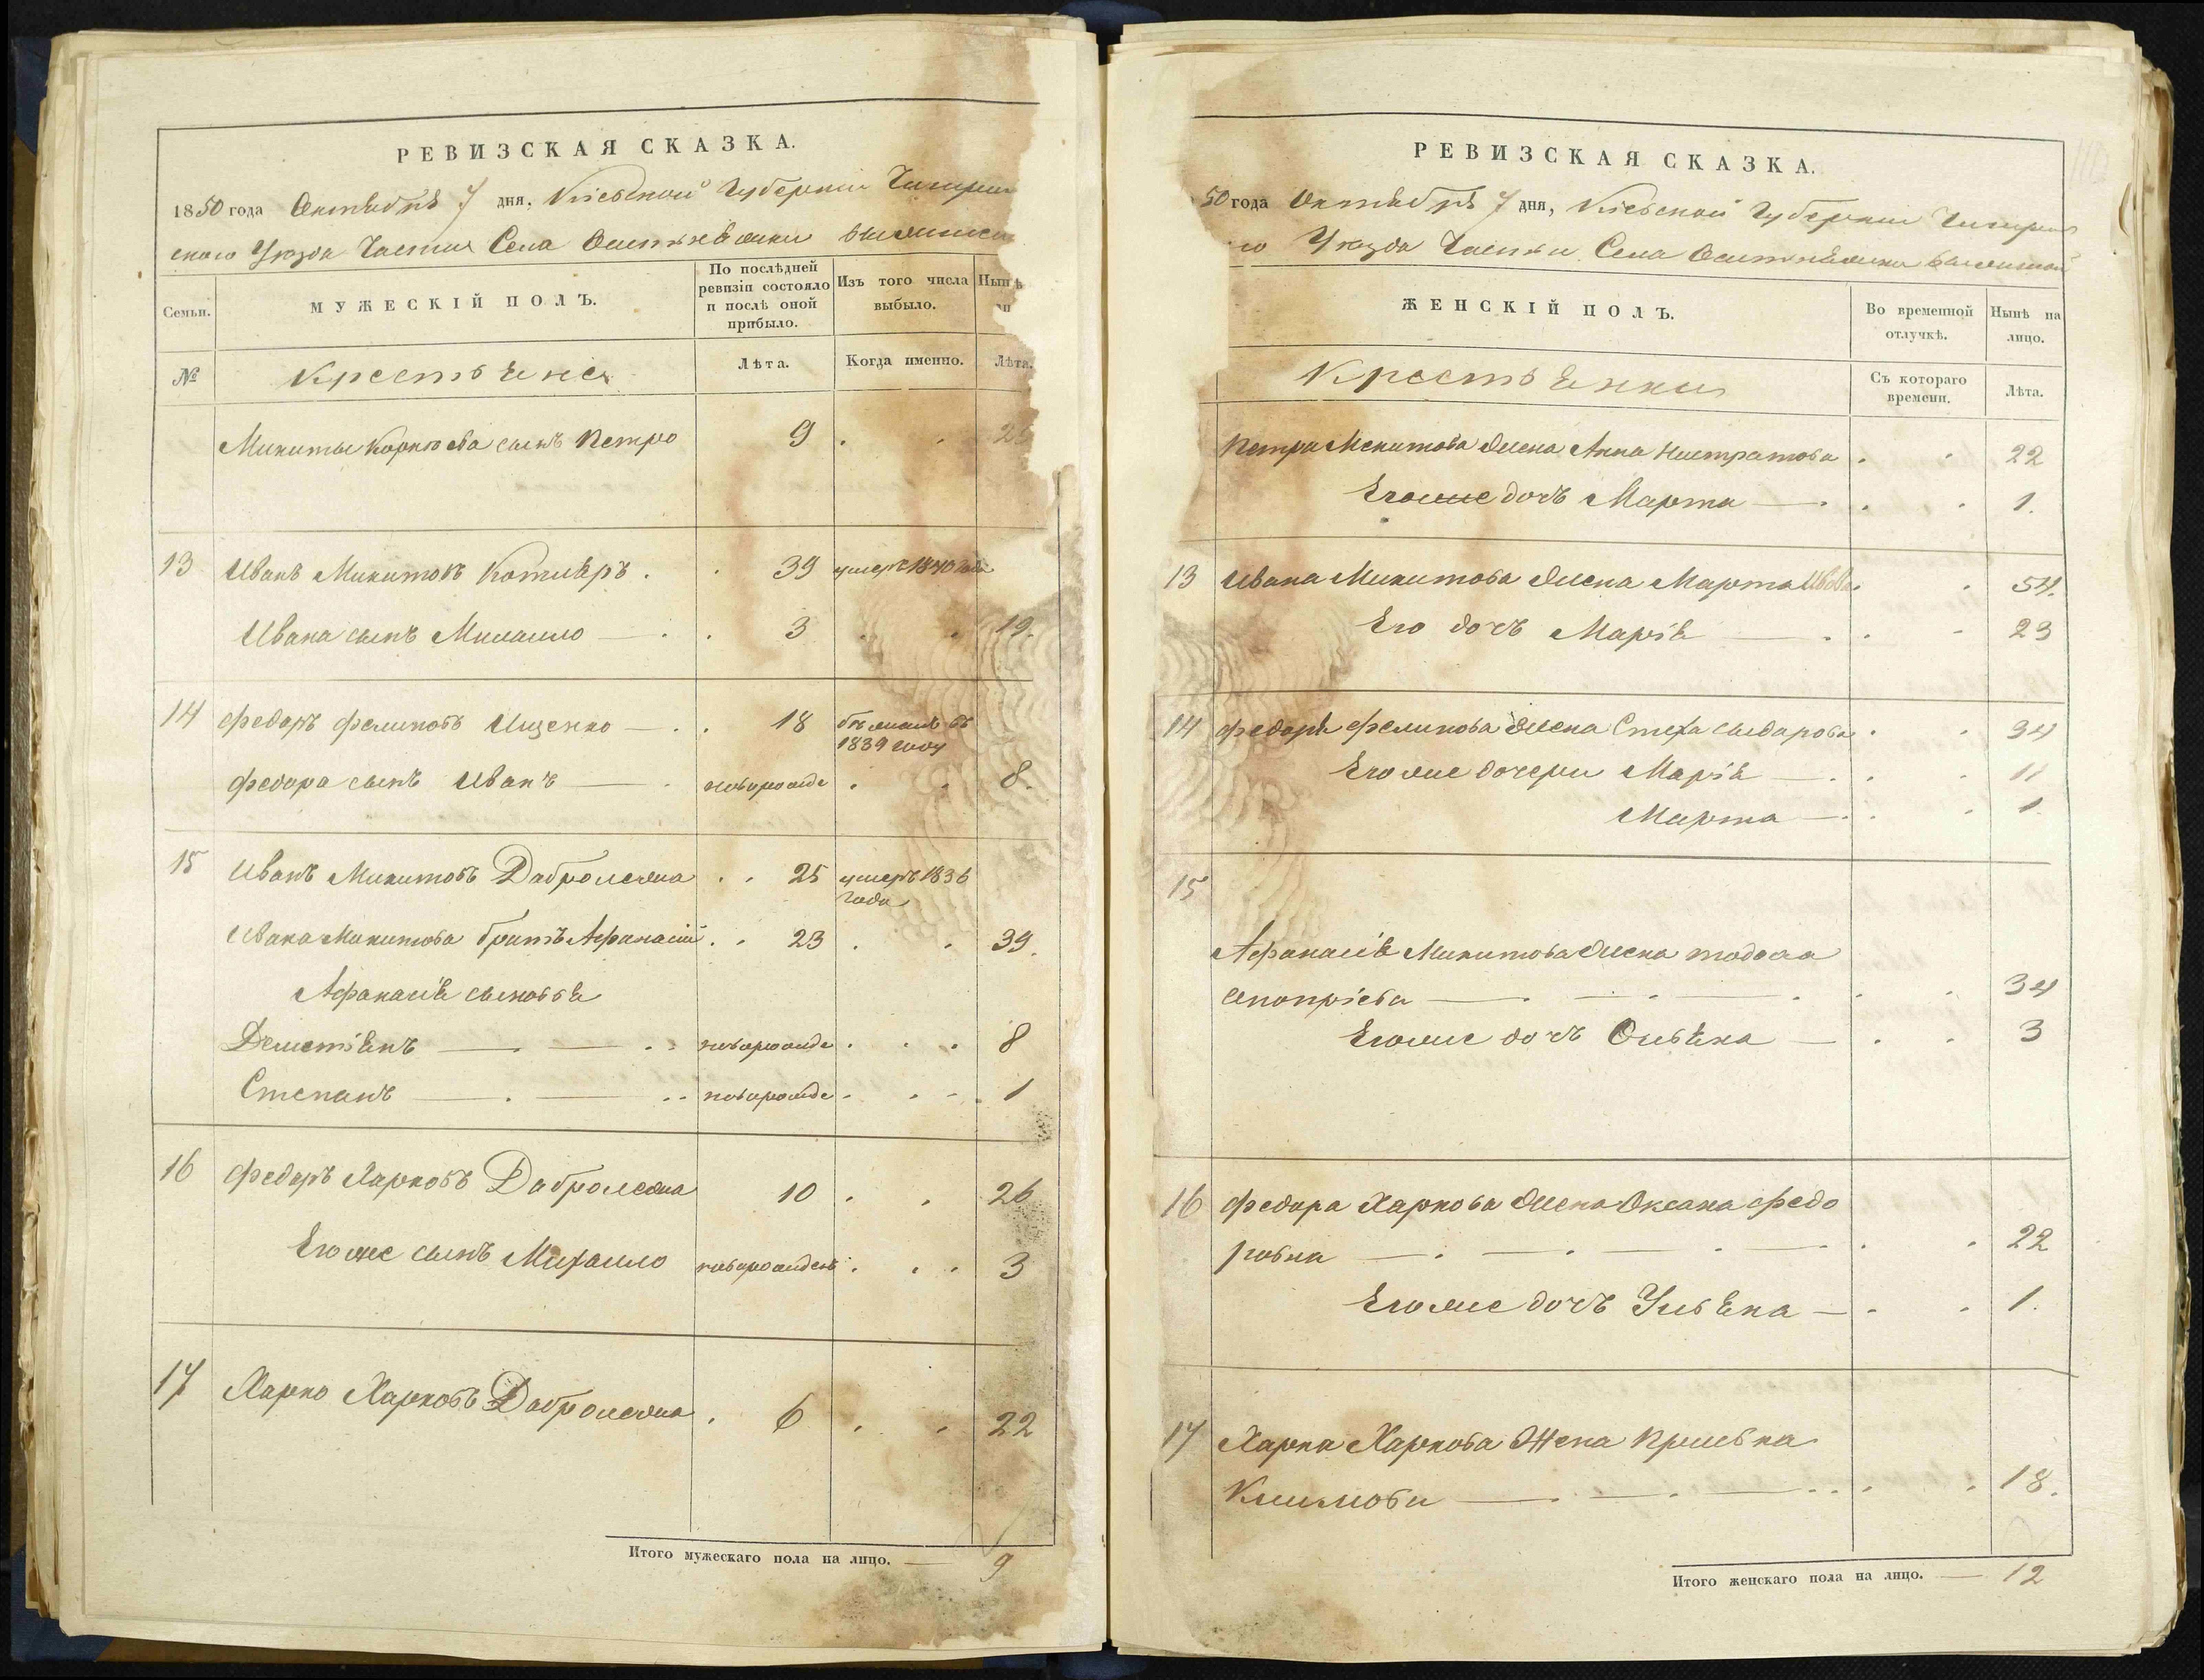 РЕВИЗСКАЯ СКАЗКА.
1850 года Октября 7 дня, Кіевской Губерніи Чигирин
ского Уезда Части Села
Семьи.
МУЖЕСКІЙ ПОЛЪ.
По послѣдней ревизіи состояло и послѣ оной прибыло.
Изъ того числа выбыло.
Нынѣ
№
Крестьяне
Лѣта.
Когда именно.
Лѣта.
Микиты сынъ Петро 9
13 Иванъ Микитовъ Котляръ 39 умеръ 1840 года
Ивана сынъ Михайло 3 19.
14 Федоръ Ищенко 18 въ
1839 году
Федора сынъ Иванъ новорожде 8.
15 Иванъ Микитовъ 25 умеръ 1836
года
Ивана Микитова братъ Афанасій 23 39.
Афанасія сыновья
новорожде 8
Степанъ новорожде 1
16 Федоръ Харковъ 10 26
Его же сынъ Михайло новорожденъ 3
17 Харко Харковъ 6 22
Итого мужескаго пола на лицо. 9
РЕВИЗСКАЯ СКАЗКА.
50 года Октября 7 дня, Кіевской Губерніи Чигирин
го Уезда Части Села
ЖЕНСКІЙ ПОЛЪ.
Во временной отлучкѣ.
Нынѣ на лицо.
Крестьянки
Съ котораго времени.
Лѣта.
Петра Микитова жена Анна 22
Егоже дочь Марта 1.
13 Ивана Микитова жена Марта 54.
Его дочь Марія 23
14 Федора жена Стеха 34
Его же дочери Марія 11
Марта 1.
15
Афанасія Микитова жена Тодоска
34
Егоже дочь 3
16 Федора Харкова жена Оксана Федо
ровна 22
Егоже дочь Ульяна 1.
17 Харка Харкова Жена
Климова 18.
Итого женскаго пола на лицо. 12